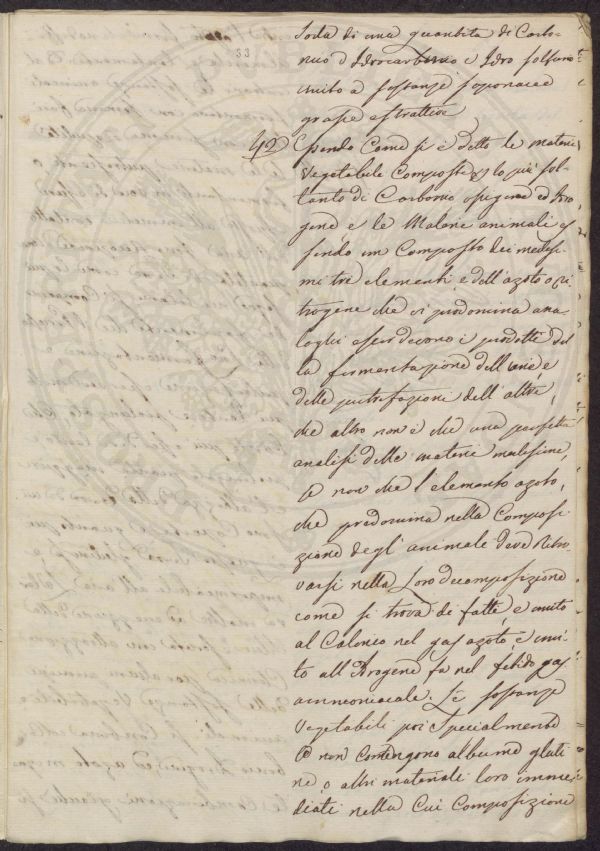 33
soda di una quantita di Carbo-
nico d Idrocarbonico e Idro solfuro
unito a sostanze saponacee
grasse estrattive
42 Essendo Come si è detto le materie
Vegetabile Composte p lo piu sol-
tanto di Carbonio ossigene ed Iro
gene e le Materie animali es
sendo un Composto dei medesi-
mi tre elementi e dell'azoto o ni
trogene che vi predomina ana-
loghi esser devono i prodotti del
la fermentazione dell'une, e
delle putrefazioni dell'altre,
che altro non è che una perfetta
analisi delle materie medesime,
Se non che l'elemento azoto,
che predomina nella Composi
zione degl' animale deve Ritro
varsi nella Loro decomposizione
come si trova di fatti, e unito
al Calorico nel gas azoto, e uni-
to all'Irogene fa nel fetido gas
ammoniacale. Le sostanze
Vegetabili poi Specialmente
Se non Contengono albume gluti
ne, o altri materiali loro imme-
diati nella Cui Composizione